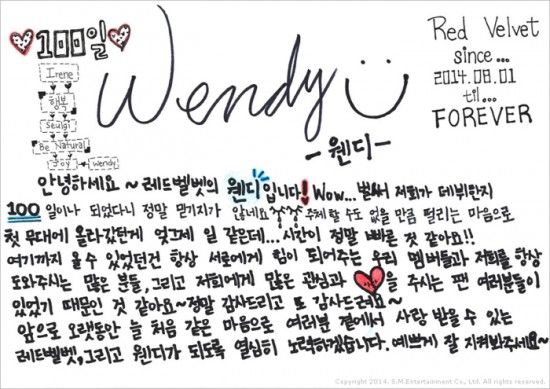 ♥100일♥
Irene
행복
Seulgi
Be Natural
Joy
Wendy
Wendy
-웬디-
Red Velvet
since...
2014.08.01
til...
FOREVER
안녕하세요~레드벨벳의 웬디입니다! Wow... 벌써 저희가 데뷔한지
100일이나 되었다니 정말 믿기지가 않네요 주체할 수도 없을 만큼 떨리는 마음으로
첫 무대에 올라갔던게 엊그제 일 같은데...시간이 정말 빠른 것 같아요!!
여기까지 올 수 있었던건 항상 서로에게 힘이 되어주는 우리 멤버들과 저희를 항상
도와주시는 많은 분들,그리고 저희에게 많은 관심과 ♥을 주시는 팬 여러분들이
있었기 때문인 것 같아요~정말 감사드리고 또 감사드려요~
앞으로 오랫동안 늘 처음 같은 마음으로 여러분 곁에서 사랑 받을 수 있는
레드벨벳,그리고 웬디가 되도록 열심히 노력하겠습니다. 예쁘게 잘 지켜봐주세요~
Copyright 2014. S.M.Entertainment Co., Ltd. All rights reserved.